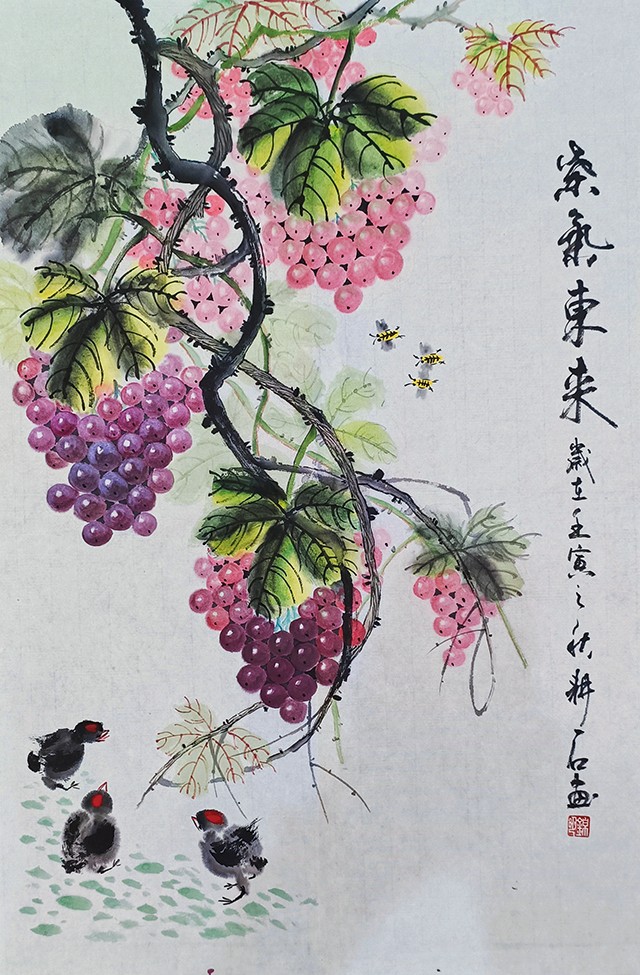 紫氣東来
歲在壬寅之秋耕石画